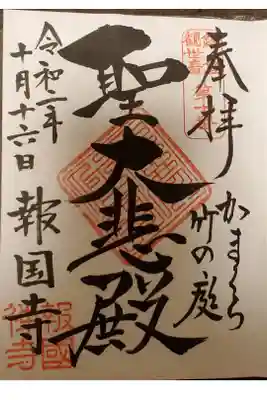 奉拝
かまくら
竹の庭
聖大悲殿
令和二年
十月十六日
報国寺
報國
禅寺